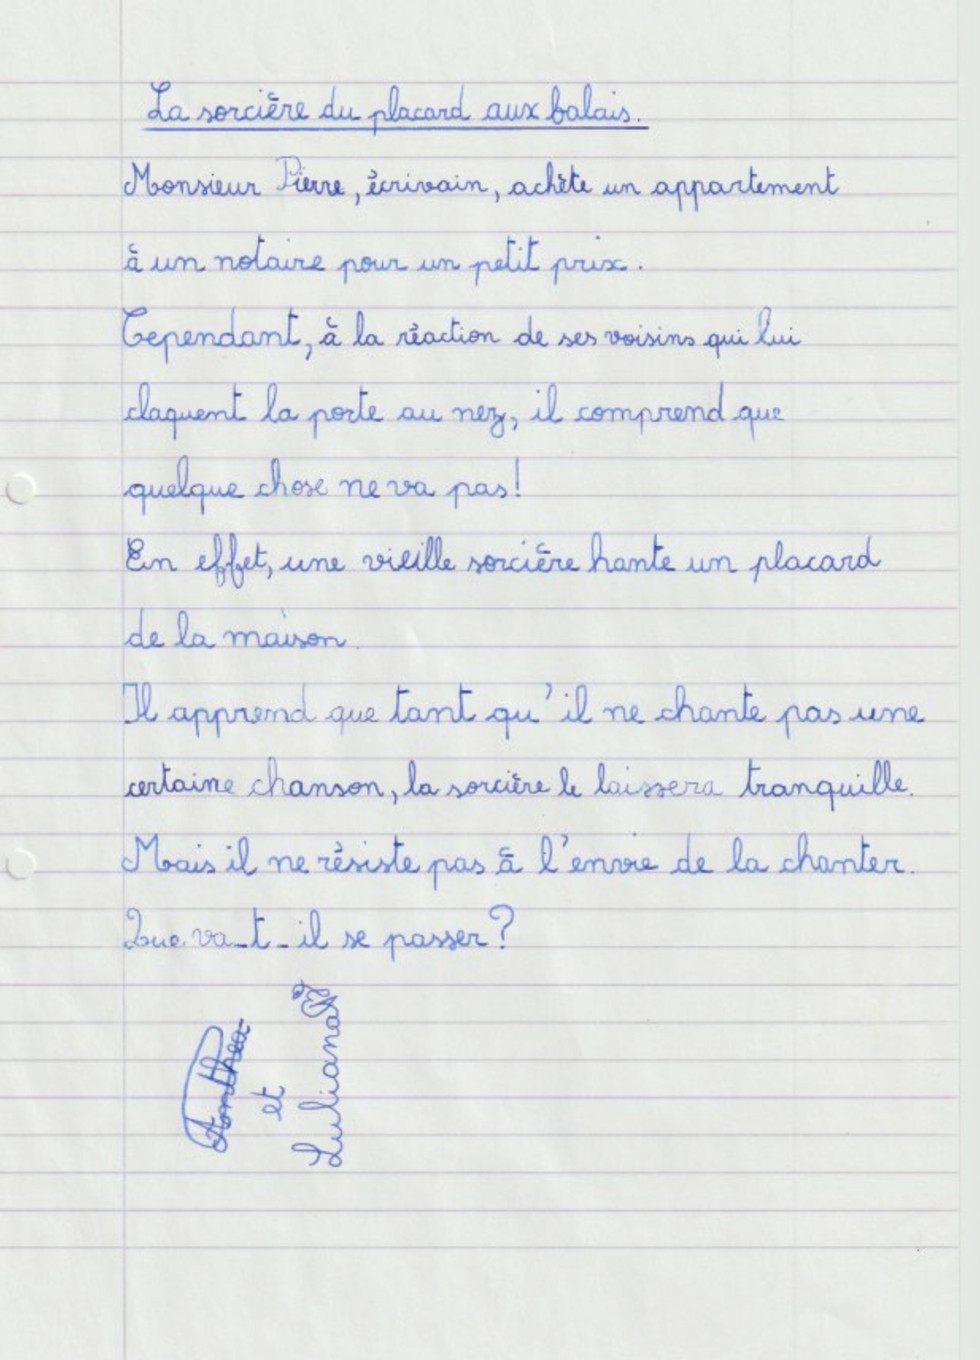 La sorcière du placard aux balais.
Monsieur Pierre, écrivain, achète un appartement
à un notaire pour un petit prix.
Cependant, à la réaction de ses voisins qui lui
claquent la porte au nez, il comprend que
quelque chose ne va pas!
En effet, une vieille sorcière hante un placard
de la maison.
Il apprend que tant qu'il ne chante pas une
certaine chanson, la sorcière le laissera tranquille.
Mais il ne résiste pas à l'envie de la chanter.
Que va-t-il se passer?
Anthea
et
Luliana